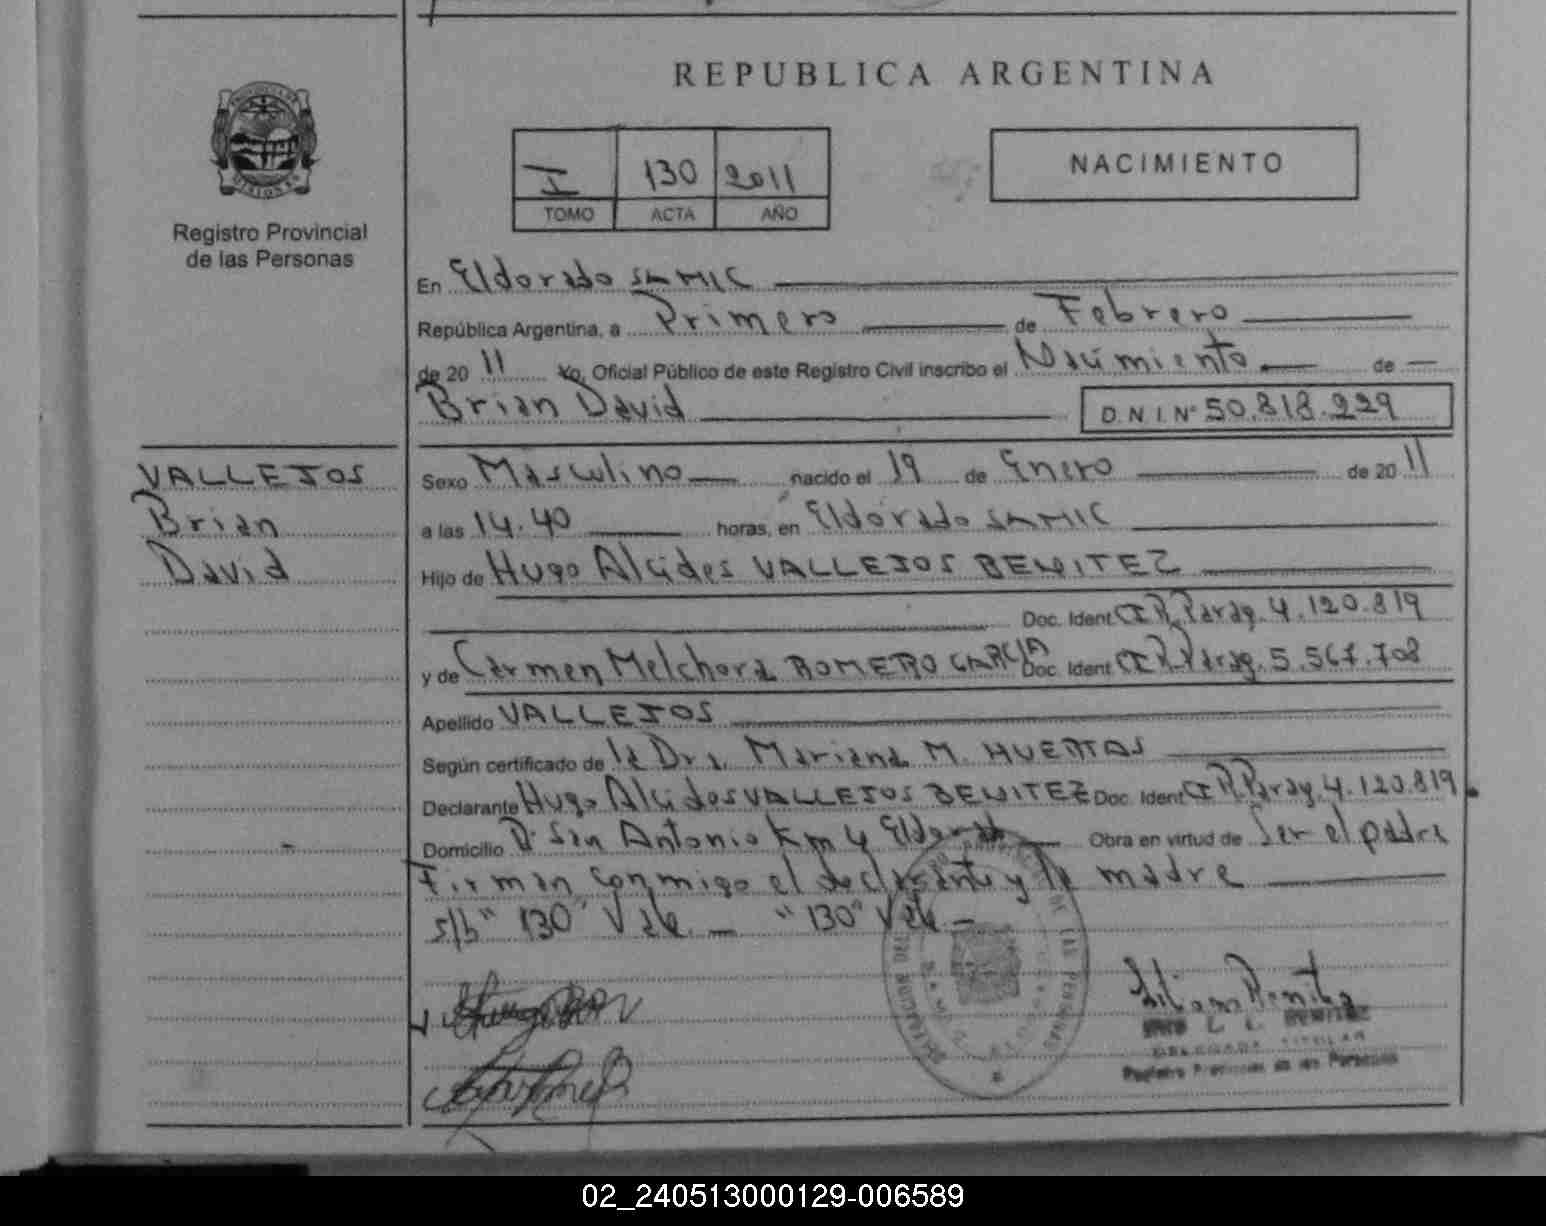 REPUBLICA ARGENTINA
I 130 2011
TOMO ACTA AÑO
NACIMIENTO
Registro Provincial
de las Personas
En Eldorado SAMIC
República Argentina, a Primero de Febrero
de 20 11 Yo, Oficial Público de este Registro Civil inscribo el Nacimiento de
Brian David
D.N.I.Nº 50.818.229
VALLEJOS
Brian
David
Sexo Masculino nacido el 19 de Enero de 20 11
a las 14.40 horas, en Eldorado SAMIC
Hijo de Hugo Alcides VALLEJOS BENITEZ
Doc. Ident CI R. Parag. 4.120.819
y de Carmen Melchora ROMERO GARCIA Doc. Ident CI R. Parag. 5.567.708
Apellido VALLEJOS
Según certificado de la Dra. Mariana M. HUERTAS
Declarante Hugo Alcides VALLEJOS BENITEZ Doc. Ident CI R. Parag. 4.120.819
Domicilio Bº San Antonio Km 4 Eldorado Obra en virtud de Ser el padre
Firman conmigo el declarante y la madre
s/b "130" Vale. "130" Vale
BENITEZ
DELEGADA TITULAR
Registro Provincial de las Personas
02_240513000129-006589